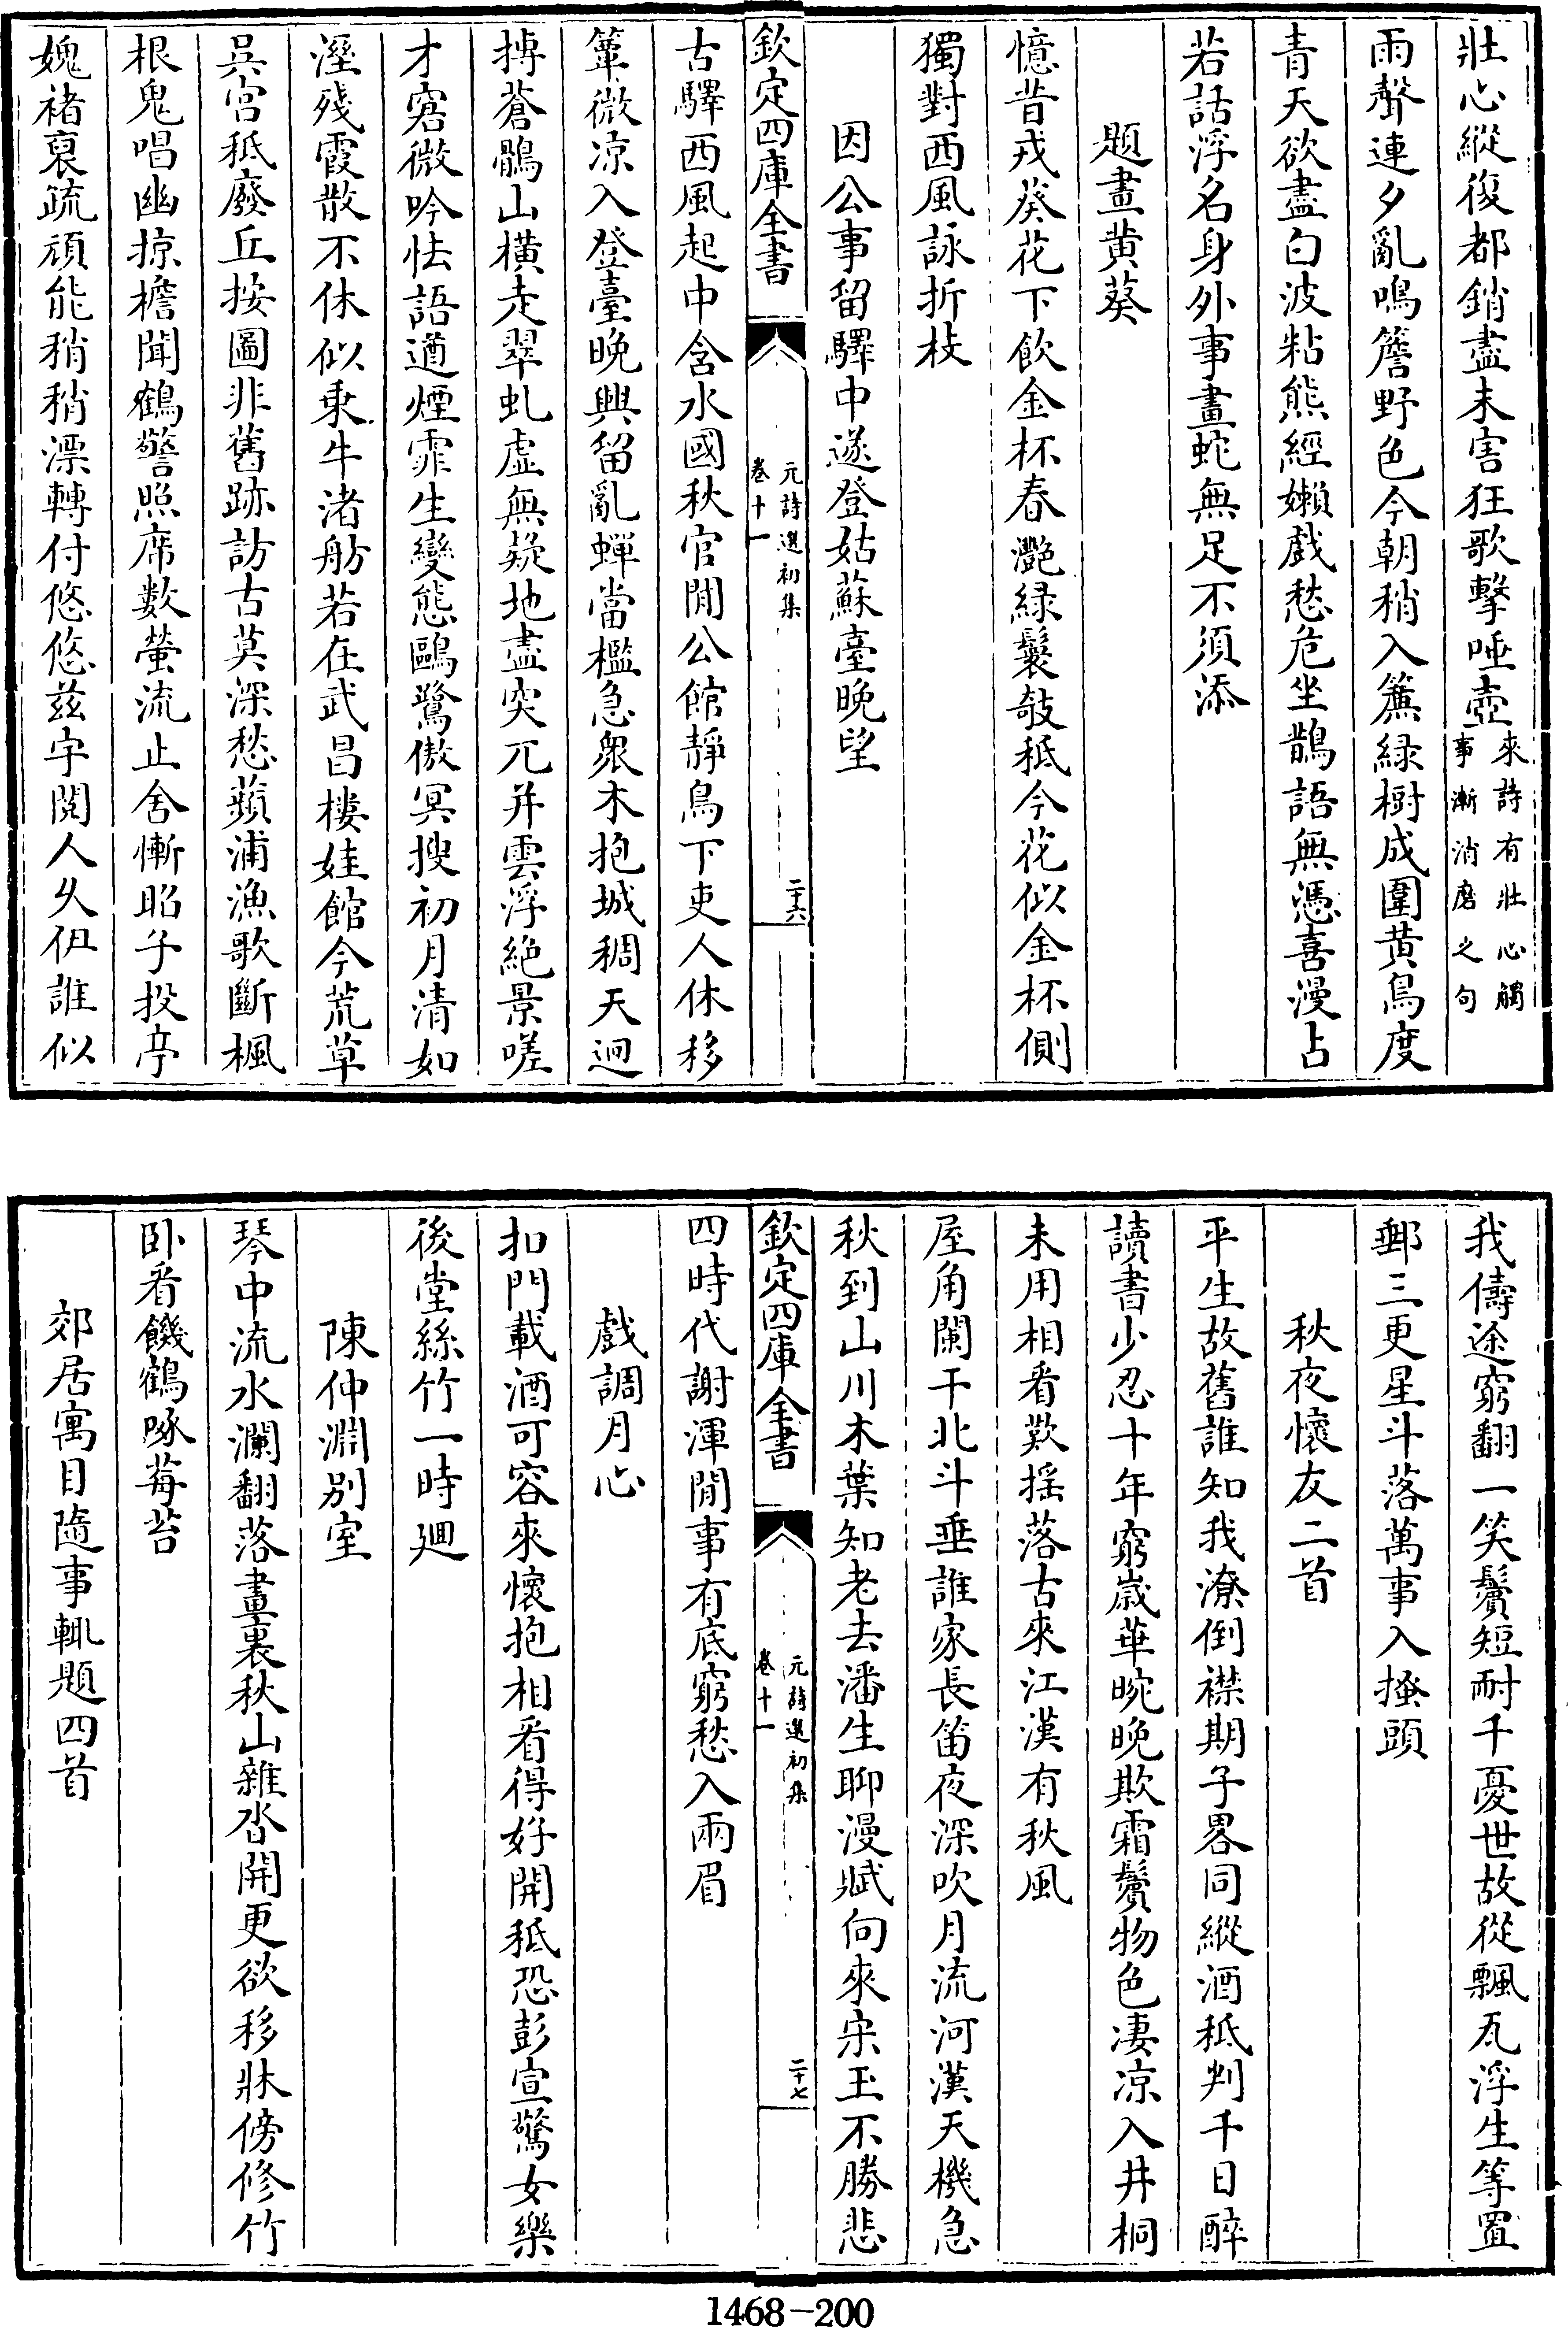 壯心縱復都銷盡未害狂歌擊唾壺來詩有壯心觸事漸消磨之句
雨聲連夕亂鳴簷野色今朝稍入簾緑樹成圍黄鳥度
青天欲盡白波粘熊經嬾戲愁危坐鵲語無憑喜漫占
若話浮名身外事畫蛇無足不須添
題畫黄葵
憶昔戎葵花下飲金杯春灔緑鬟攲秪今花似金杯側
獨對西風詠折枝
因公事留驛中遂登姑蘇臺晚望
欽定四庫全書
元詩選初集
卷十一
二十六
古驛西風起中含水國秋官閒公館靜鳥下吏人休移
簟微凉入登臺晚興留亂蟬當檻急衆木抱城稠天迴
搏蒼鶻山横走翠虬虚無疑地盡突兀并雲浮絶景嗟
才窘微吟怯語遒煙霏生變態鷗鷺傲冥搜初月清如
溼殘霞散不休似乗牛渚舫若在武昌樓娃館今荒草
吳宫秪廢丘按圖非舊跡訪古莫深愁蘋浦漁歌斷楓
根鬼唱幽掠檐聞鶴警照席數螢流止舍慚昭子投亭
媿褚裒疏頑能稍稍漂轉付悠悠兹宇閱人久伊誰似
我儔途窮翻一笑鬢短耐千憂世故從飄瓦浮生等置
郵三更星斗落萬事入搔頭
秋夜懷友二首
平生故舊誰知我潦倒襟期子畧同縱酒秪判千日醉
讀書少忍十年窮歲華晼晚欺霜鬢物色凄凉入井桐
未用相看歎揺落古來江漢有秋風
屋角闌干北斗垂誰家長笛夜深吹月流河漢天機急
秋到山川木葉知老去潘生聊漫賦向來宋玉不勝悲
欽定四庫全書
元詩選初集
卷十一
二十七
四時代謝渾閒事有底窮愁入兩眉
戲調月心
扣門載酒可容來懷抱相看得好開秪恐彭宣驚女樂
後堂絲竹一時廻
陳仲淵别室
琴中流水瀾翻落畫裏秋山雜沓開更欲移牀傍修竹
卧看饑鶴啄莓苔
郊居寓目隨事輒題四首
1468-200